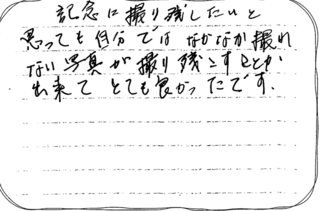 記念に撮り残したいと
思っても自分では なかなか撮れ
ない写真が撮り残こすことが
出来て とても良かったです.